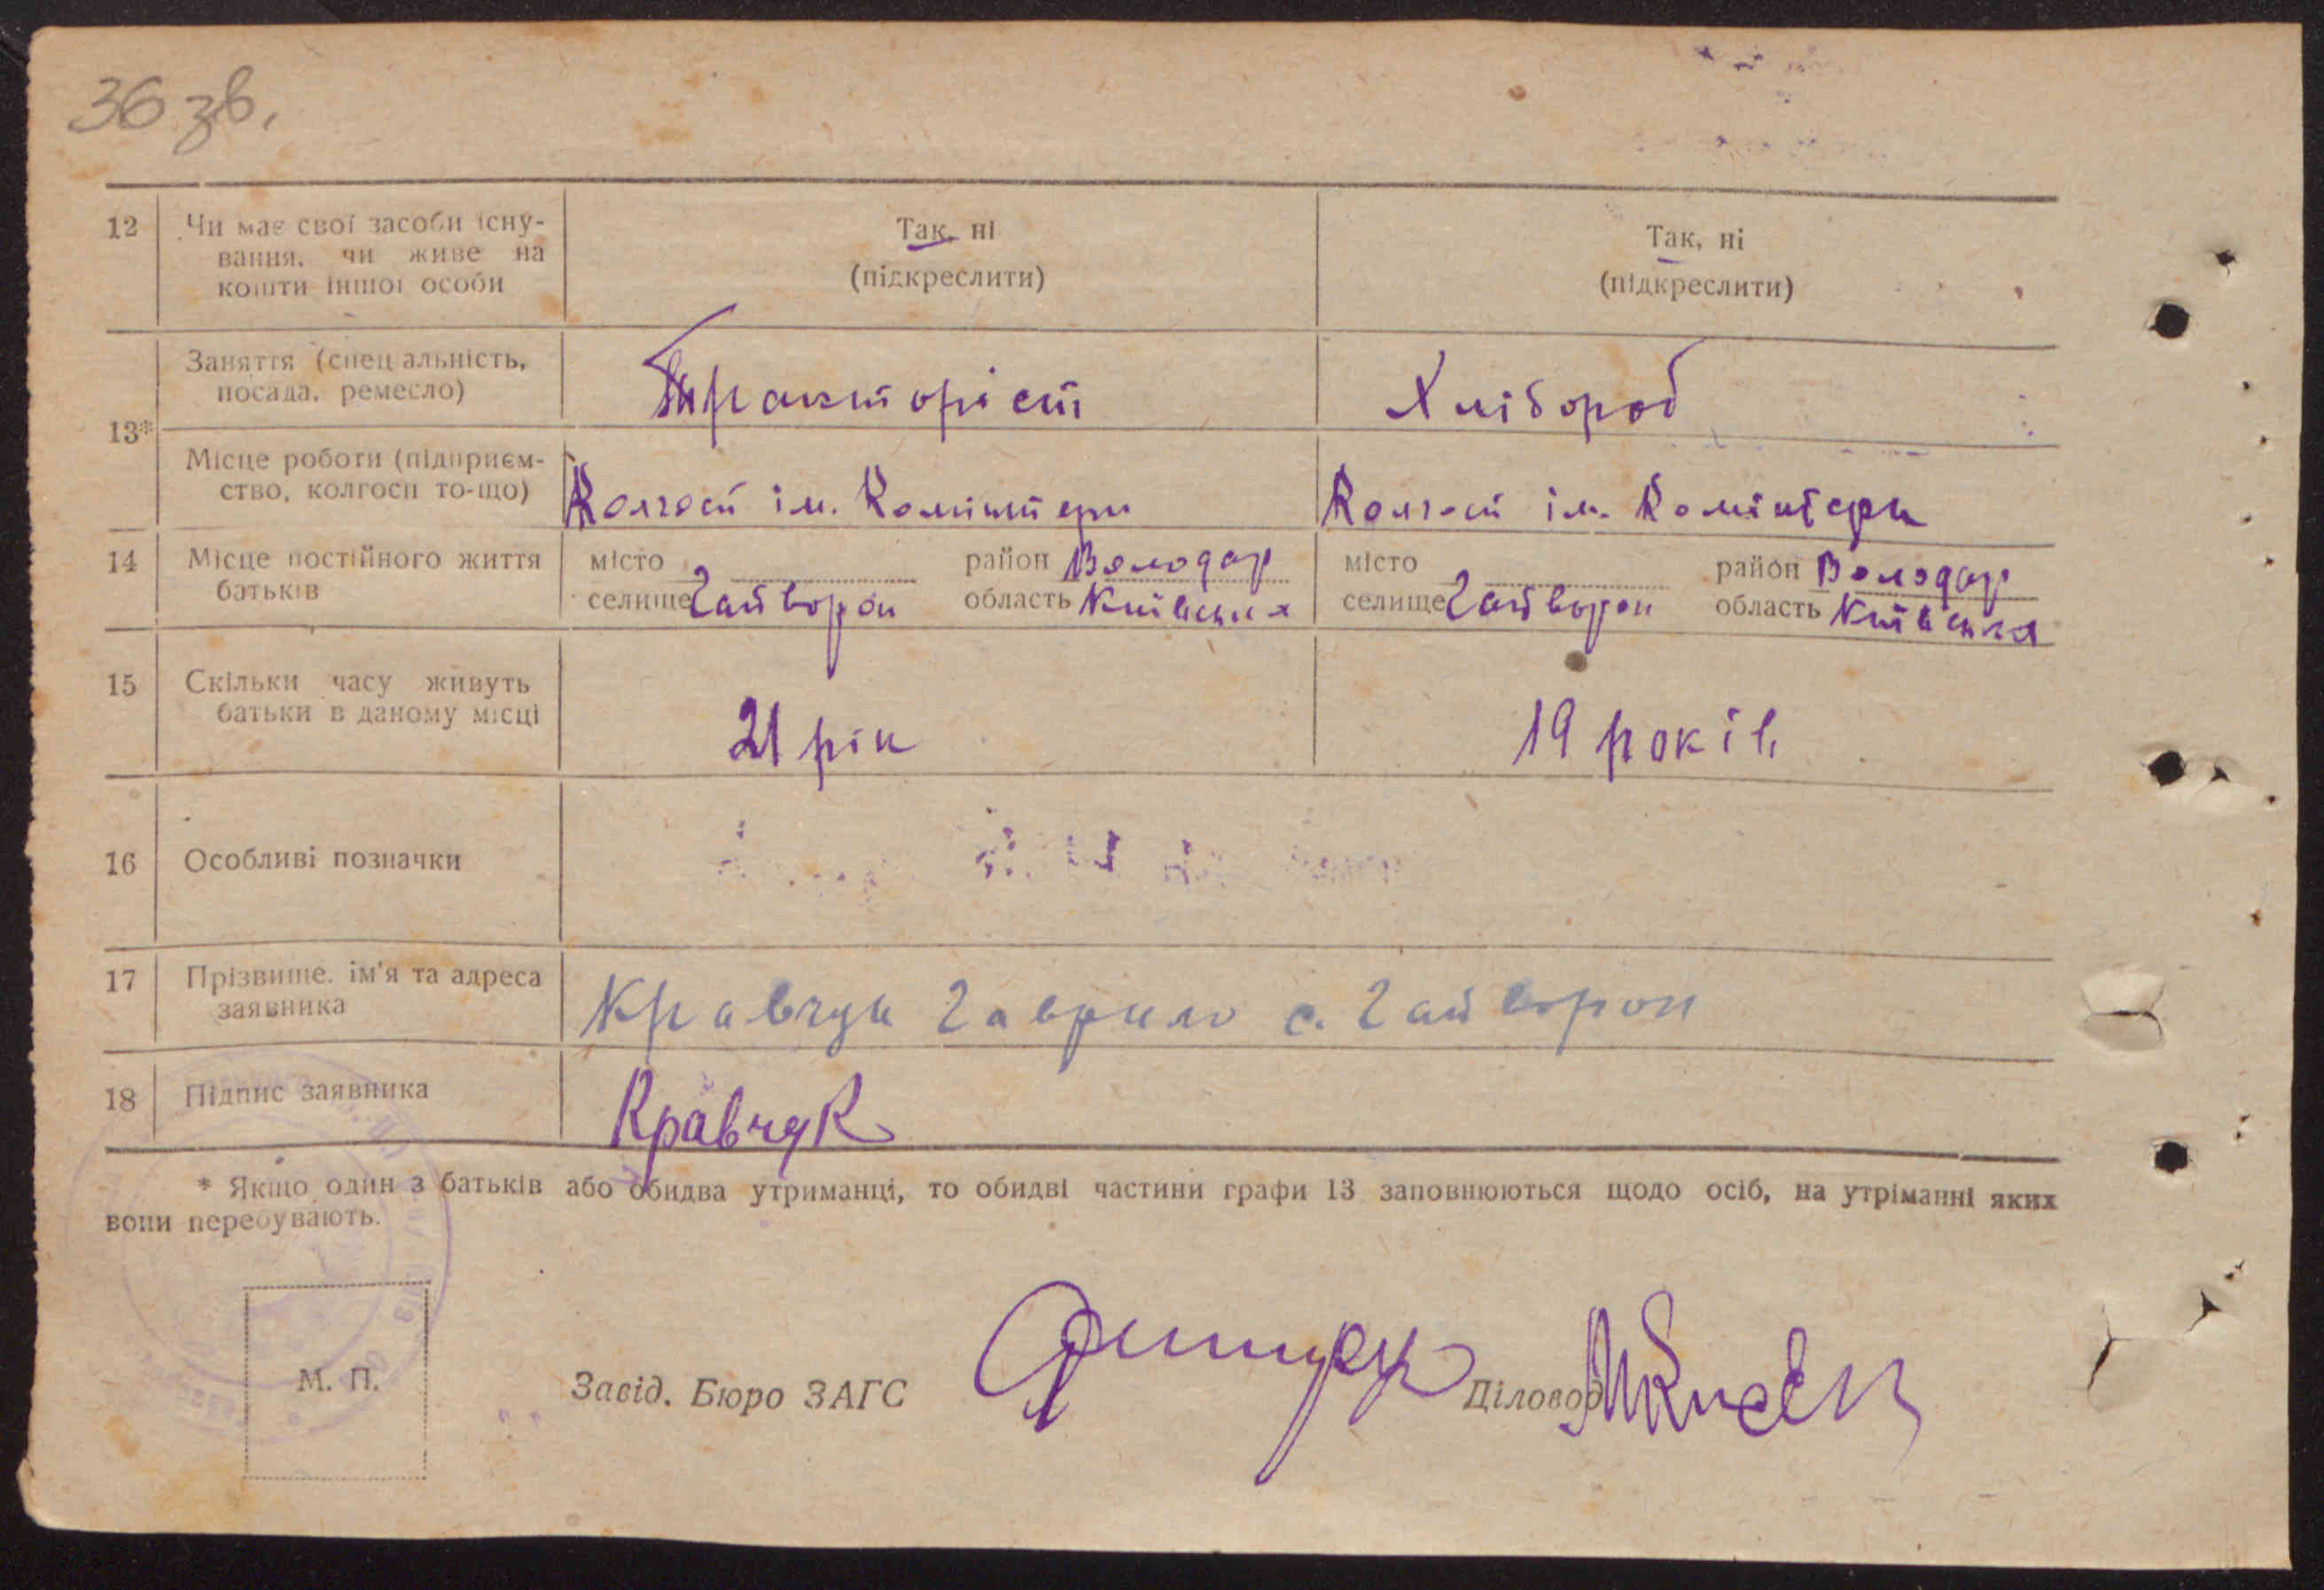 36 зв.
12 Чи має свої засоби існу-
вання, чи живе на
кошти іншої особи
Так, ні
(підкреслити)
Так, ні
(підкреслити)
13*
Заняття (спеціальність,
посада, ремесло)
Тракторіст
Хлібороб
Місце роботи (підприєм-
ство, колгосп то-що)
Колгосп ім. Комінтерн
Колгосп ім. Комінтерн
14 Місце постійного життя
батьків
місто район Володар
селище Гайворон область Київська
місто район Володар
селище Гайворон область Київська
15 Скільки часу живуть
батьки в даному місці
21 рік
19 років
16 Особливі позначки
17 Прізвище, ім'я та адреса
заявника
Кравчук Гаврило с. Гайворон
18 Підпис заявника
Кравчук
* Якщо один з батьків або обидва утриманці, то обидві частини графи 13 заповнюються щодо осіб, на утріманні яких
вони перебувають.
М. П.
Завід. Бюро ЗАГС
Діловод